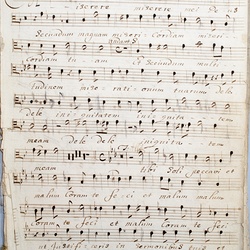 iserere miserere mei De us
Secundum magnam miseri cordiam miseri
cordiam tu am et Secundum multi
tudinem mise rati onum tuarum dele
dele iniquitatem iniquita tem
meam Dele Dele iniquita tem
meam tibi soli peccavi et
malum Coram te fe ci et malum malum
Coram te feci et malum Coram te feci
ut Justifi ceris in Sermonibus tuis et